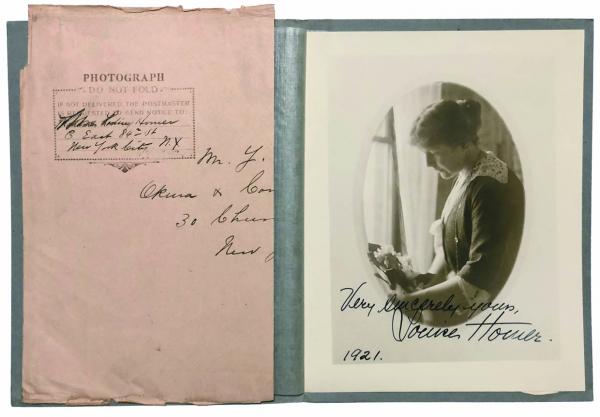 PHOTOGRAPH
DO NOT FOLD
IF NOT DELIVERED THE POSTMASTER
IS REQUESTED TO SEND NOTICE TO:
Homer
East 86th St
New York City, N.Y.
Mr. Y.
Okura & Com
30 Chur
New
Very sincerely yours,
Louise Homer.
1921.